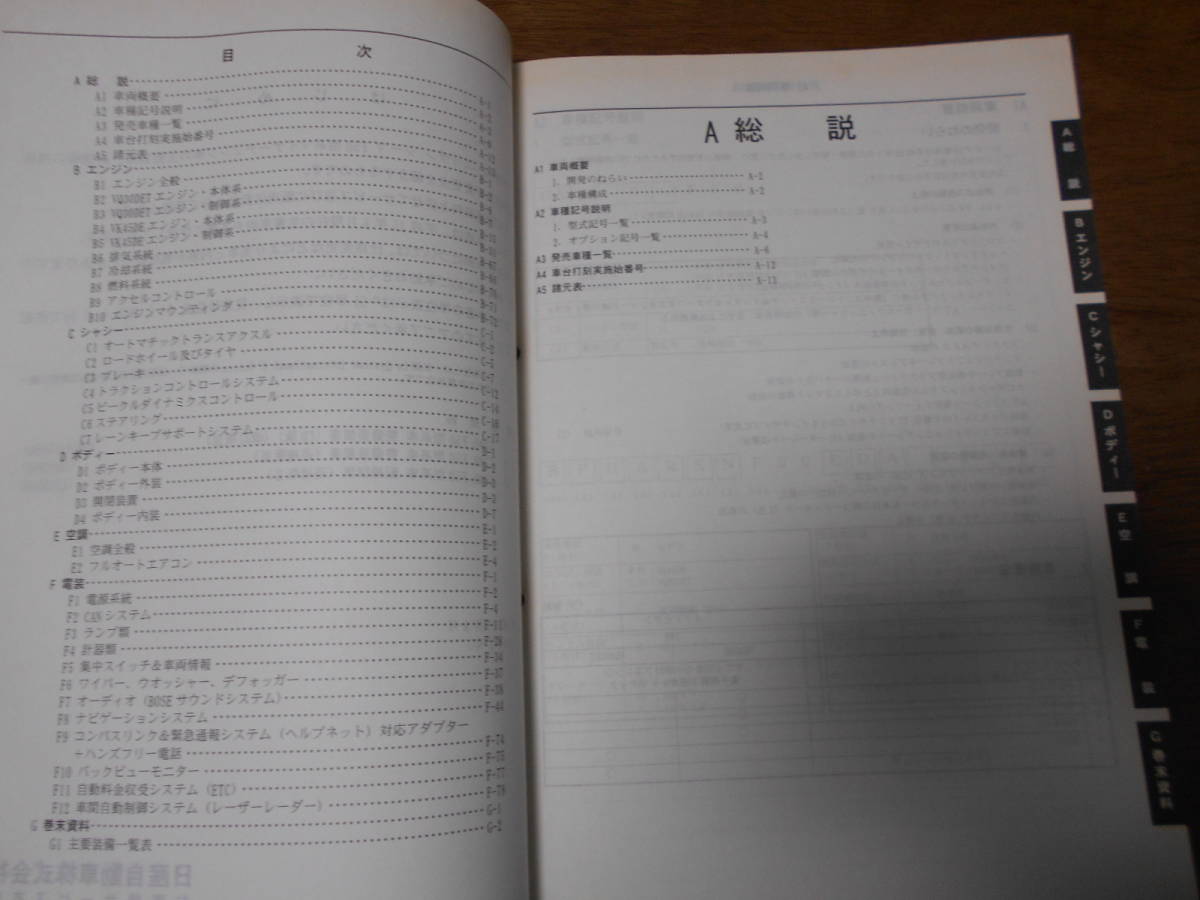 目 次
A 総 説 A-1
A1 車両概要 A-2
A2 車種記号説明 A-3
A3 発売車種一覧 A-6
A4 車台打刻実施始番号 A-12
A5 諸元表 A-13
B エンジン B-1
B1 エンジン全般 B-2
B2 VQ30DETエンジン・本体系
B3 VQ30DETエンジン・制御系
B4 VK45DEエンジン・本体系
B5 VK45DEエンジン・制御系
B6 排気系統
B7 冷却系統
B8 燃料系統
B9 アクセルコントロール B-71
B10 エンジンマウンティング B-72
C シャシー C-1
C1 オートマチックトランスアクスル C-2
C2 ロードホイール及びタイヤ C-5
C3 ブレーキ C-7
C4 トラクションコントロールシステム C-12
C5 ビークルダイナミクスコントロール C-14
C6 ステアリング C-16
C7 レーンキープサポートシステム C-17
D ボディー D-1
D1 ボディー本体 D-2
D2 ボディー外装
D3 開閉装置
D4 ボディー内装 D-7
E 空調 E-1
E1 空調全般 E-2
E2 フルオートエアコン E-4
F 電装 F-1
F1 電源系統 F-2
F2 CANシステム F-4
F3 ランプ類 F-11
F4 計器類 F-28
F5 集中スイッチ＆車両情報 F-34
F6 ワイパー、ウオッシャー、デフォッガー F-37
F7 オーディオ（BOSEサウンドシステム） F-38
F8 ナビゲーションシステム F-44
F9 コンパスリンク＆緊急通報システム（ヘルプネット）対応アダプター
＋ハンズフリー電話 F-74
F10 バックビューモニター F-75
F11 自動料金収受システム（ETC） F-77
F12 車間自動制御システム（レーザーレーダー） F-78
G 巻末資料 G-1
G1 主要装備一覧表 G-2
A 総 説
A1 車両概要
1. 開発のねらい A-2
2. 車種構成 A-2
A2 車種記号説明
1. 型式記号一覧 A-3
2. オプション記号一覧 A-4
A3 発売車種一覧 A-6
A4 車台打刻実施始番号 A-12
A5 諸元表 A-13
A 総 説
B エンジン
C シャシー
D ボディー
E 空 調
F 電 装
G 巻末資料